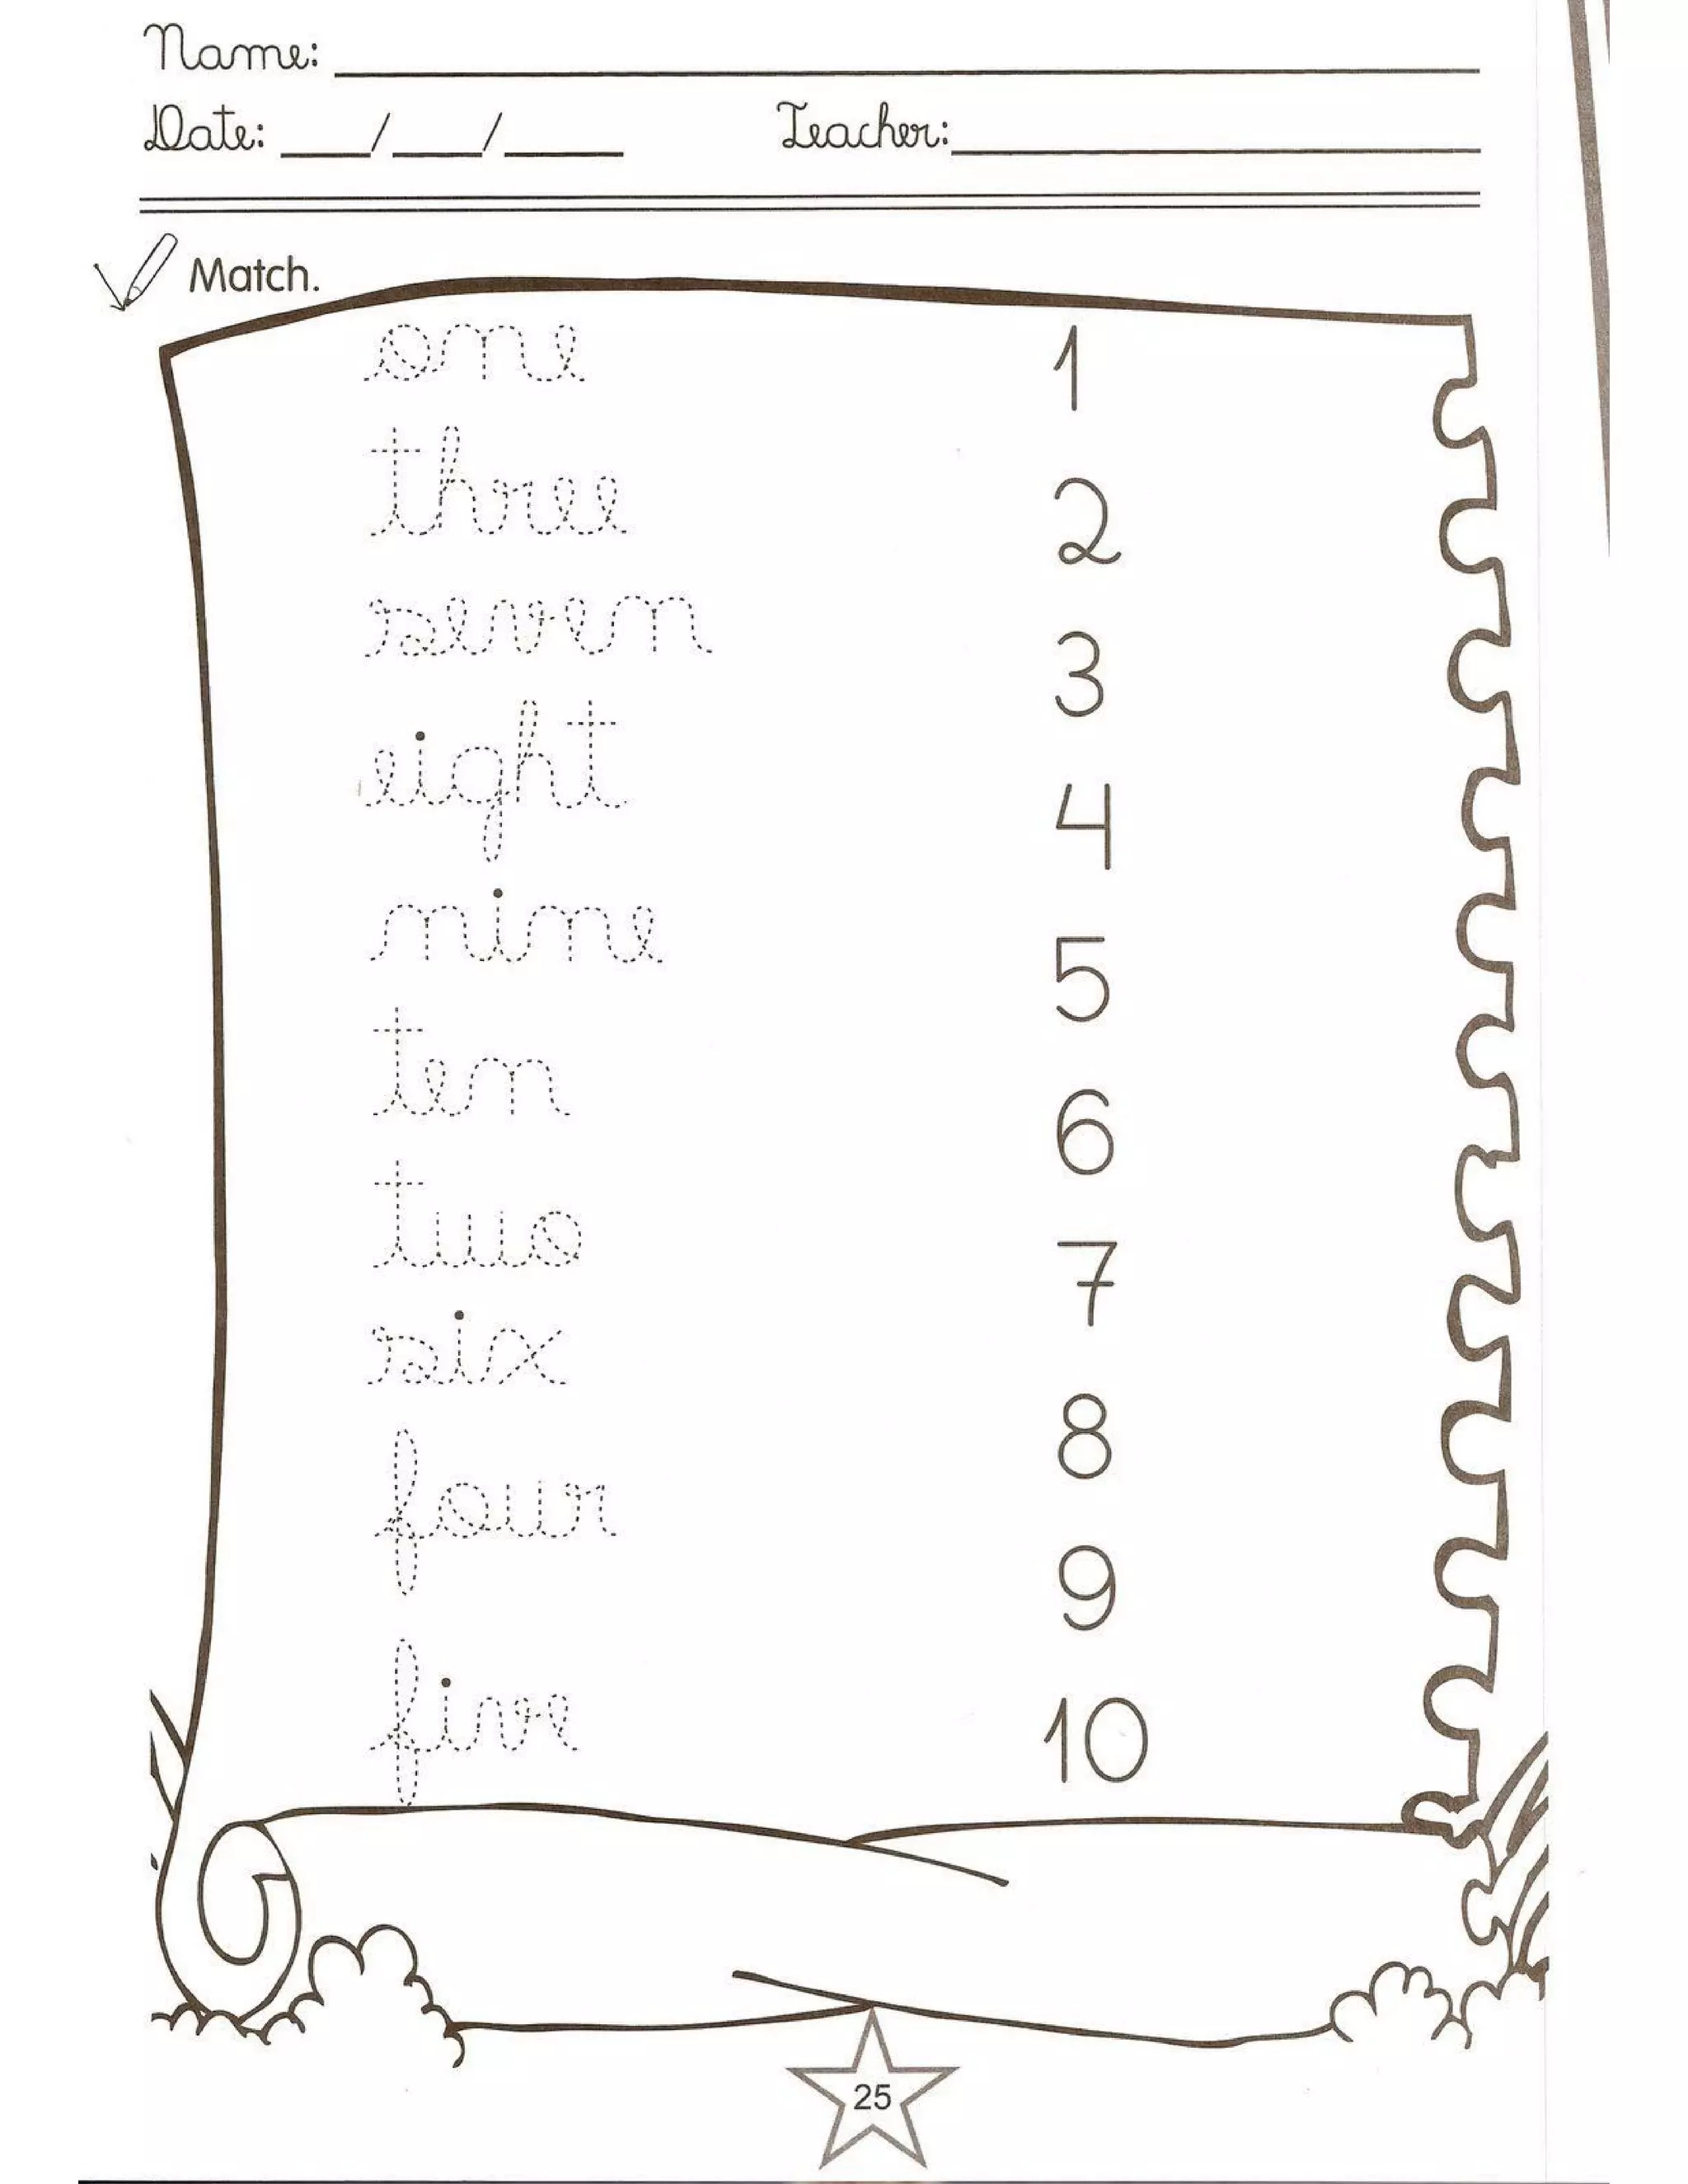 Name:
Date: ___/___/___ Teacher:
Match.
one 1
three 2
seven 3
eight 4
nine 5
ten 6
two 7
six 8
four 9
five 10
25